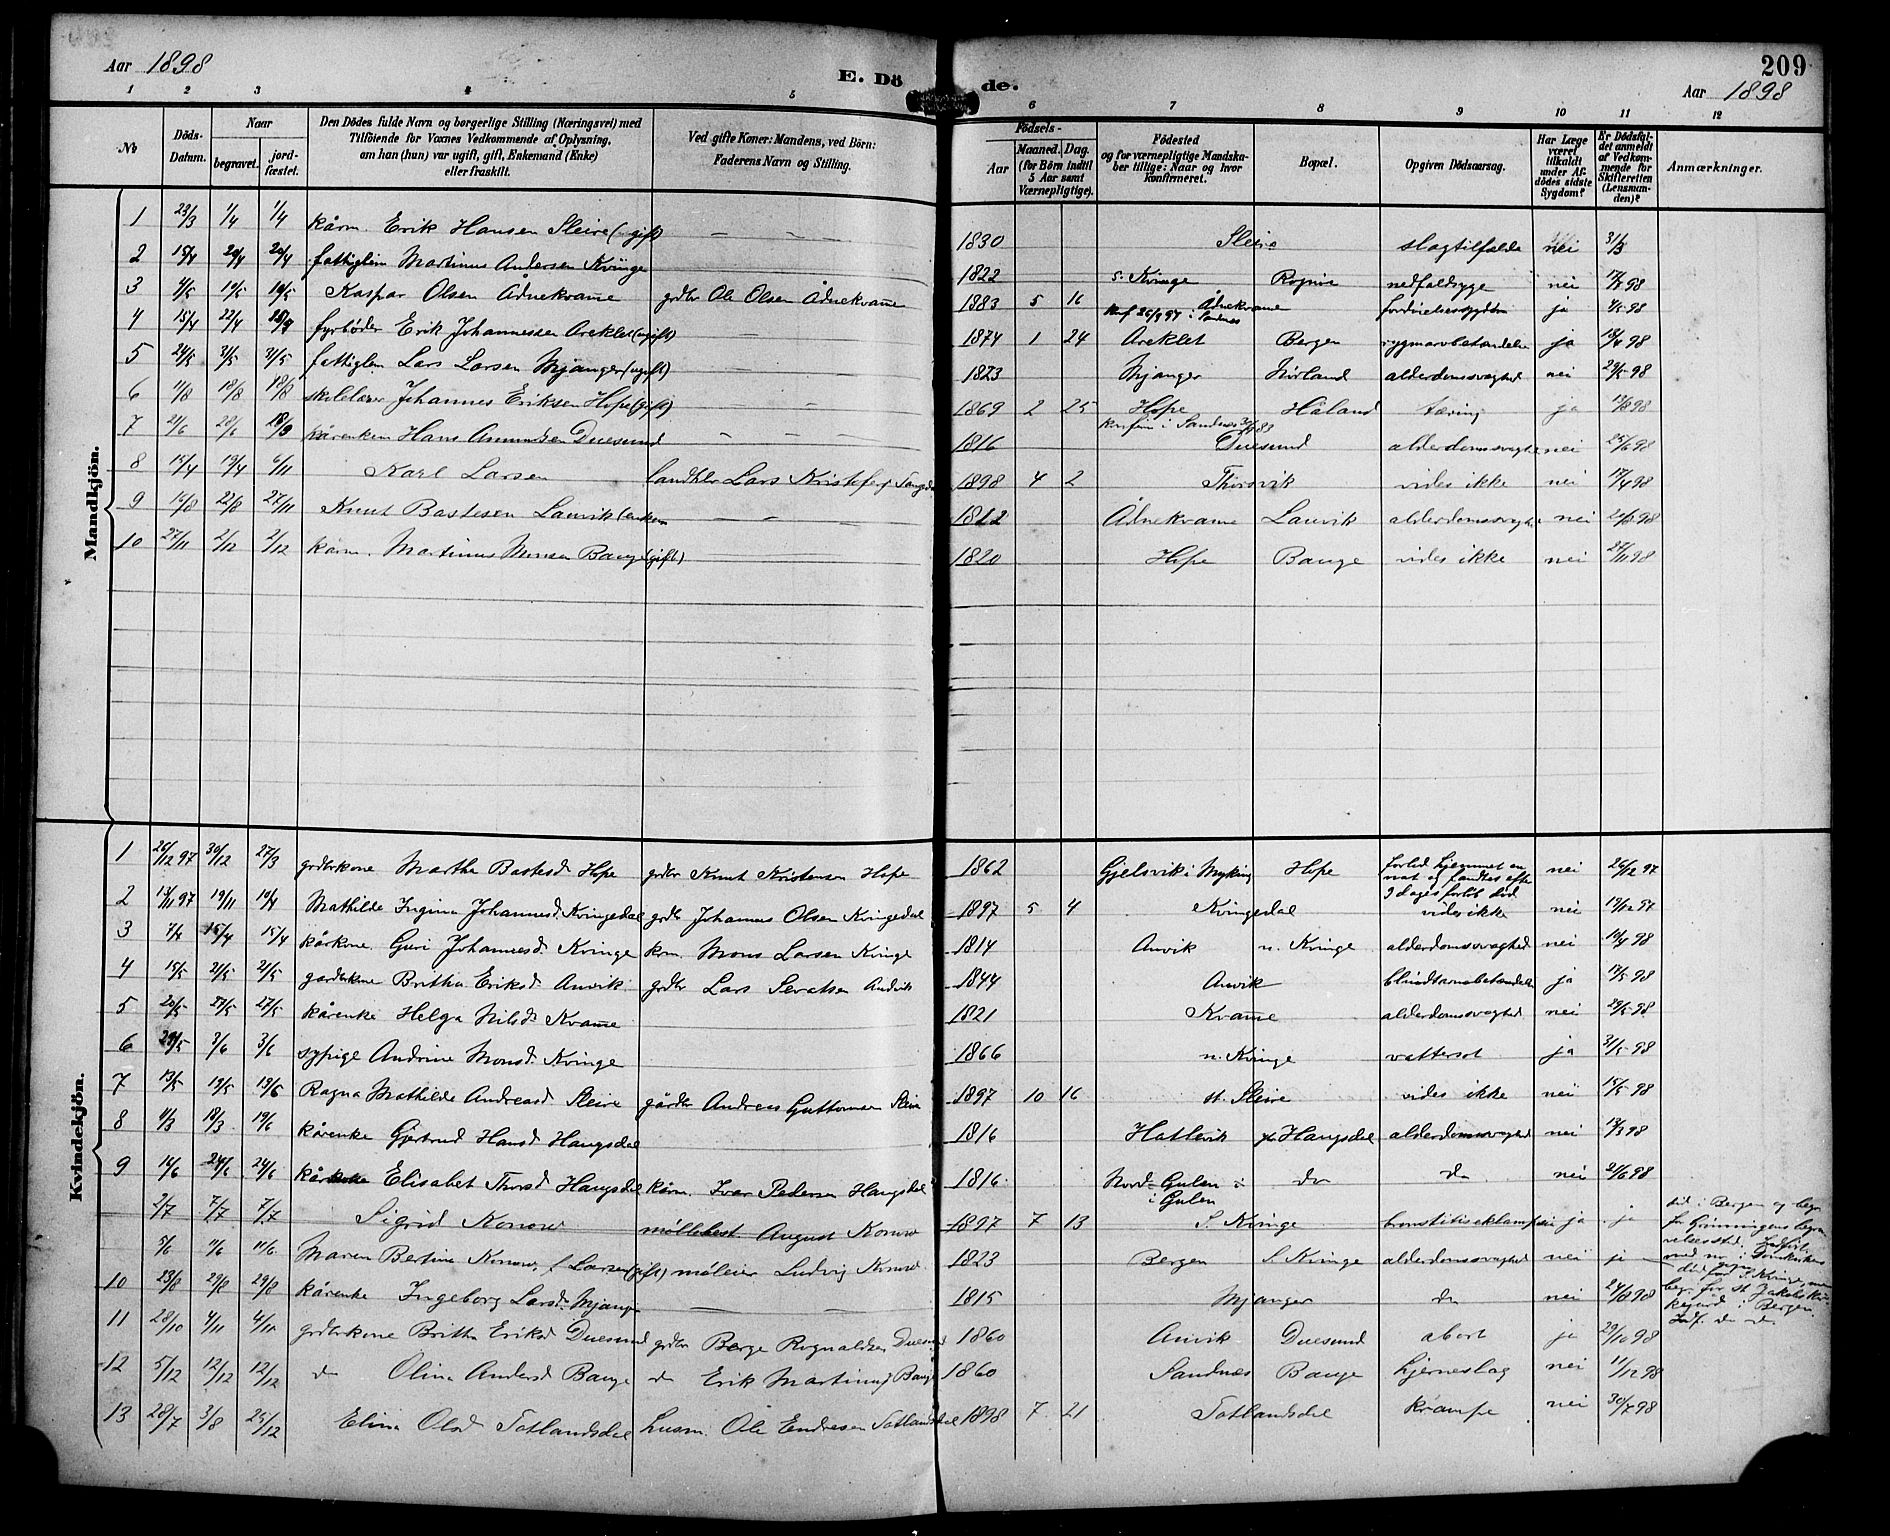 Aar 1898
E. Dö de.
209
Aar 1898
1 2 3 4 5 6 7 8 9 10 11 12
No
Döds-Datum.
Naar begravet. jordfæstet.
Den Dödes fulde Navn og borgerlige Stilling (Næringsvei) med Tilföiende for Voxnes Vedkommende af Oplysning, om han (hun) var ugift, gift, Enkemand (Enke) eller fraskilt.
Ved gifte Koner: Mandens, ved Börn: Faderens Navn og Stilling.
Födsels-
Aar Maaned. Dag. (for Börn indtil 5 Aar samt Værnepligtige).
Födested og for værnepligtige Mandskaber tillige: Naar og hvor konfirmeret.
Bopæl.
Opgiven Dödsaarsag.
Har Læge været tilkaldt under Afdödes sidste Sygdom?
Er Dödsfaldet anmeldt af Vedkommende for Skifteretten (Lensmanden)?
Anmærkninger.
Mandkjön.
1 23/3 1/4 1/4 kårm. Erik Hansen Sleire (gift) — — — 1830 Sleire slagtilfælde nei 31/3
2 15/4 20/4 20/4 fattiglem Martinus Andersen Kvinge 1822 s. Kvinge nedfaldsyge nei 98
3 4/5 10/5 10/5 Kaspar Olsen Ådnekvame grdbr Ole Olsen Ådnekvame 1883 5 16 Ådnekvame ja 4/5 98
konf 26/9 97 i Sandnes
4 15/4 22/4 fyrbøder Erik Johannessen Areklet (ugift) 1874 1 24 Areklet Bergen rygmarvbetændelse ja 18/4 98
5 24/5 31/5 31/5 fattiglem Lars Larsen Mjanger (ugift) 1823 Mjanger alderdomssvaghed nei 98
6 11/8 18/8 18/8 skolelærer Johannes Eriksen Hope (gift) 1869 2 25 Hope Håland tæring ja 98
konfirm i Sandnes 83
7 21/6 28/6 18/9 kårenkem Hans Amundsen Duesund — — — 1816 Duesund alderdomssvaghed nei 25/6 98
8 15/4 19/4 6/11 Karl Larsen landhdlr Lars Kristofers 1898 4 2 vides ikke nei 17/4 98
9 16/8 22/8 27/11 Knut Bastesen Lauvik (enkem — — — 1812 Ådnekvame Lauvik alderdomssvaghed nei 20/8 98
10 27/11 2/12 2/12 kårm. Martinus Monsen Bauge (gift) 1820 Hope Bauge vides ikke nei 27/11 98
Kvindekjön.
1 26/12 97 30/12 27/3 grdbrkone Martha Bastesd Hope grdbr Knut Kristensen Hope 1862 Gjelsvik i Myking Hope forlod hjemmet en nat og fandtes efter 9 dages forløb død nei 26/12 97
2 13/11 97 19/11 19/4 Mathilde Ingina Johannesd. Kvingedal grdbr Johannes Olsen Kvingedal 1897 5 4 Kvingedal vides ikke nei 19/12 97
3 7/4 15/4 15/4 kårkone Guri Johannesd. Kvinge krm. Mons Larsen Kvinge 1814 Anvik n. Kvinge alderdomssvaghed nei 10/4 98
4 15/5 21/5 21/5 gardbrkone Britha Eriksd Anvik grdbr Lars Andvik 1844 Anvik blindtarmsbetændelse ja 17/5 98
5 20/5 27/5 27/5 kårenke Helga Nilsd. Kvamme 1821 Kvamme alderdomssvaghed nei 29/5 98
6 29/5 3/6 3/6 sypige Andrine Monsd. Kvinge 1866 n. Kvinge vattersot ja 31/5 98
7 13/5 19/5 19/6 Ragna Mathilde Andreasd Sleire gårdbr Andreas Guttormsen Sleire 1897 10 16 st. Sleire vides ikke nei 15/5 98
8 11/3 18/3 19/6 kårenke Gjertrud Hansd Haugsdal 1816 Hatlevik Haugsdal alderdomssvaghed nei 17/3 98
9 16/6 24/6 24/6 kårkone Elisabet Thorsd Haugsdal kårm. Ivar Pedersen Haugsdal 1816 Nord-Gulen i Gulen do do nei 21/6 98
2/7 7/7 7/7 Sigrid Konow møllebest. August Konow 1897 7 13 S. Kvinge ja ja
5/6 11/6 11/6 Maren Bertine Konow, f. Larsen (gift) møleier Ludvig Konow 1823 Bergen S. Kvinge alderdomssvaghed nei ja
10 23/8 29/8 29/8 kårenke Ingeborg Larsd. Mjanger — — 1815 Mjanger do nei 24/8 98
11 28/10 4/11 4/11 grdbrkone Britha Eriksd Duesund grdbr Berge Rognaldsen Duesund 1860 Anvik Duesund abort ja 29/10 98
12 5/12 12/12 12/12 do Olina Andersd Bauge do Erik Martinus Bauge 1860 Sandnes Bauge hjerneslag nei 11/12 98
13 28/7 3/8 25/12 Elina Olsd Totlandsdal husm. Ole Endresen Totlandsdal 1898 7 21 Totlandsdal krampe nei 30/7 98